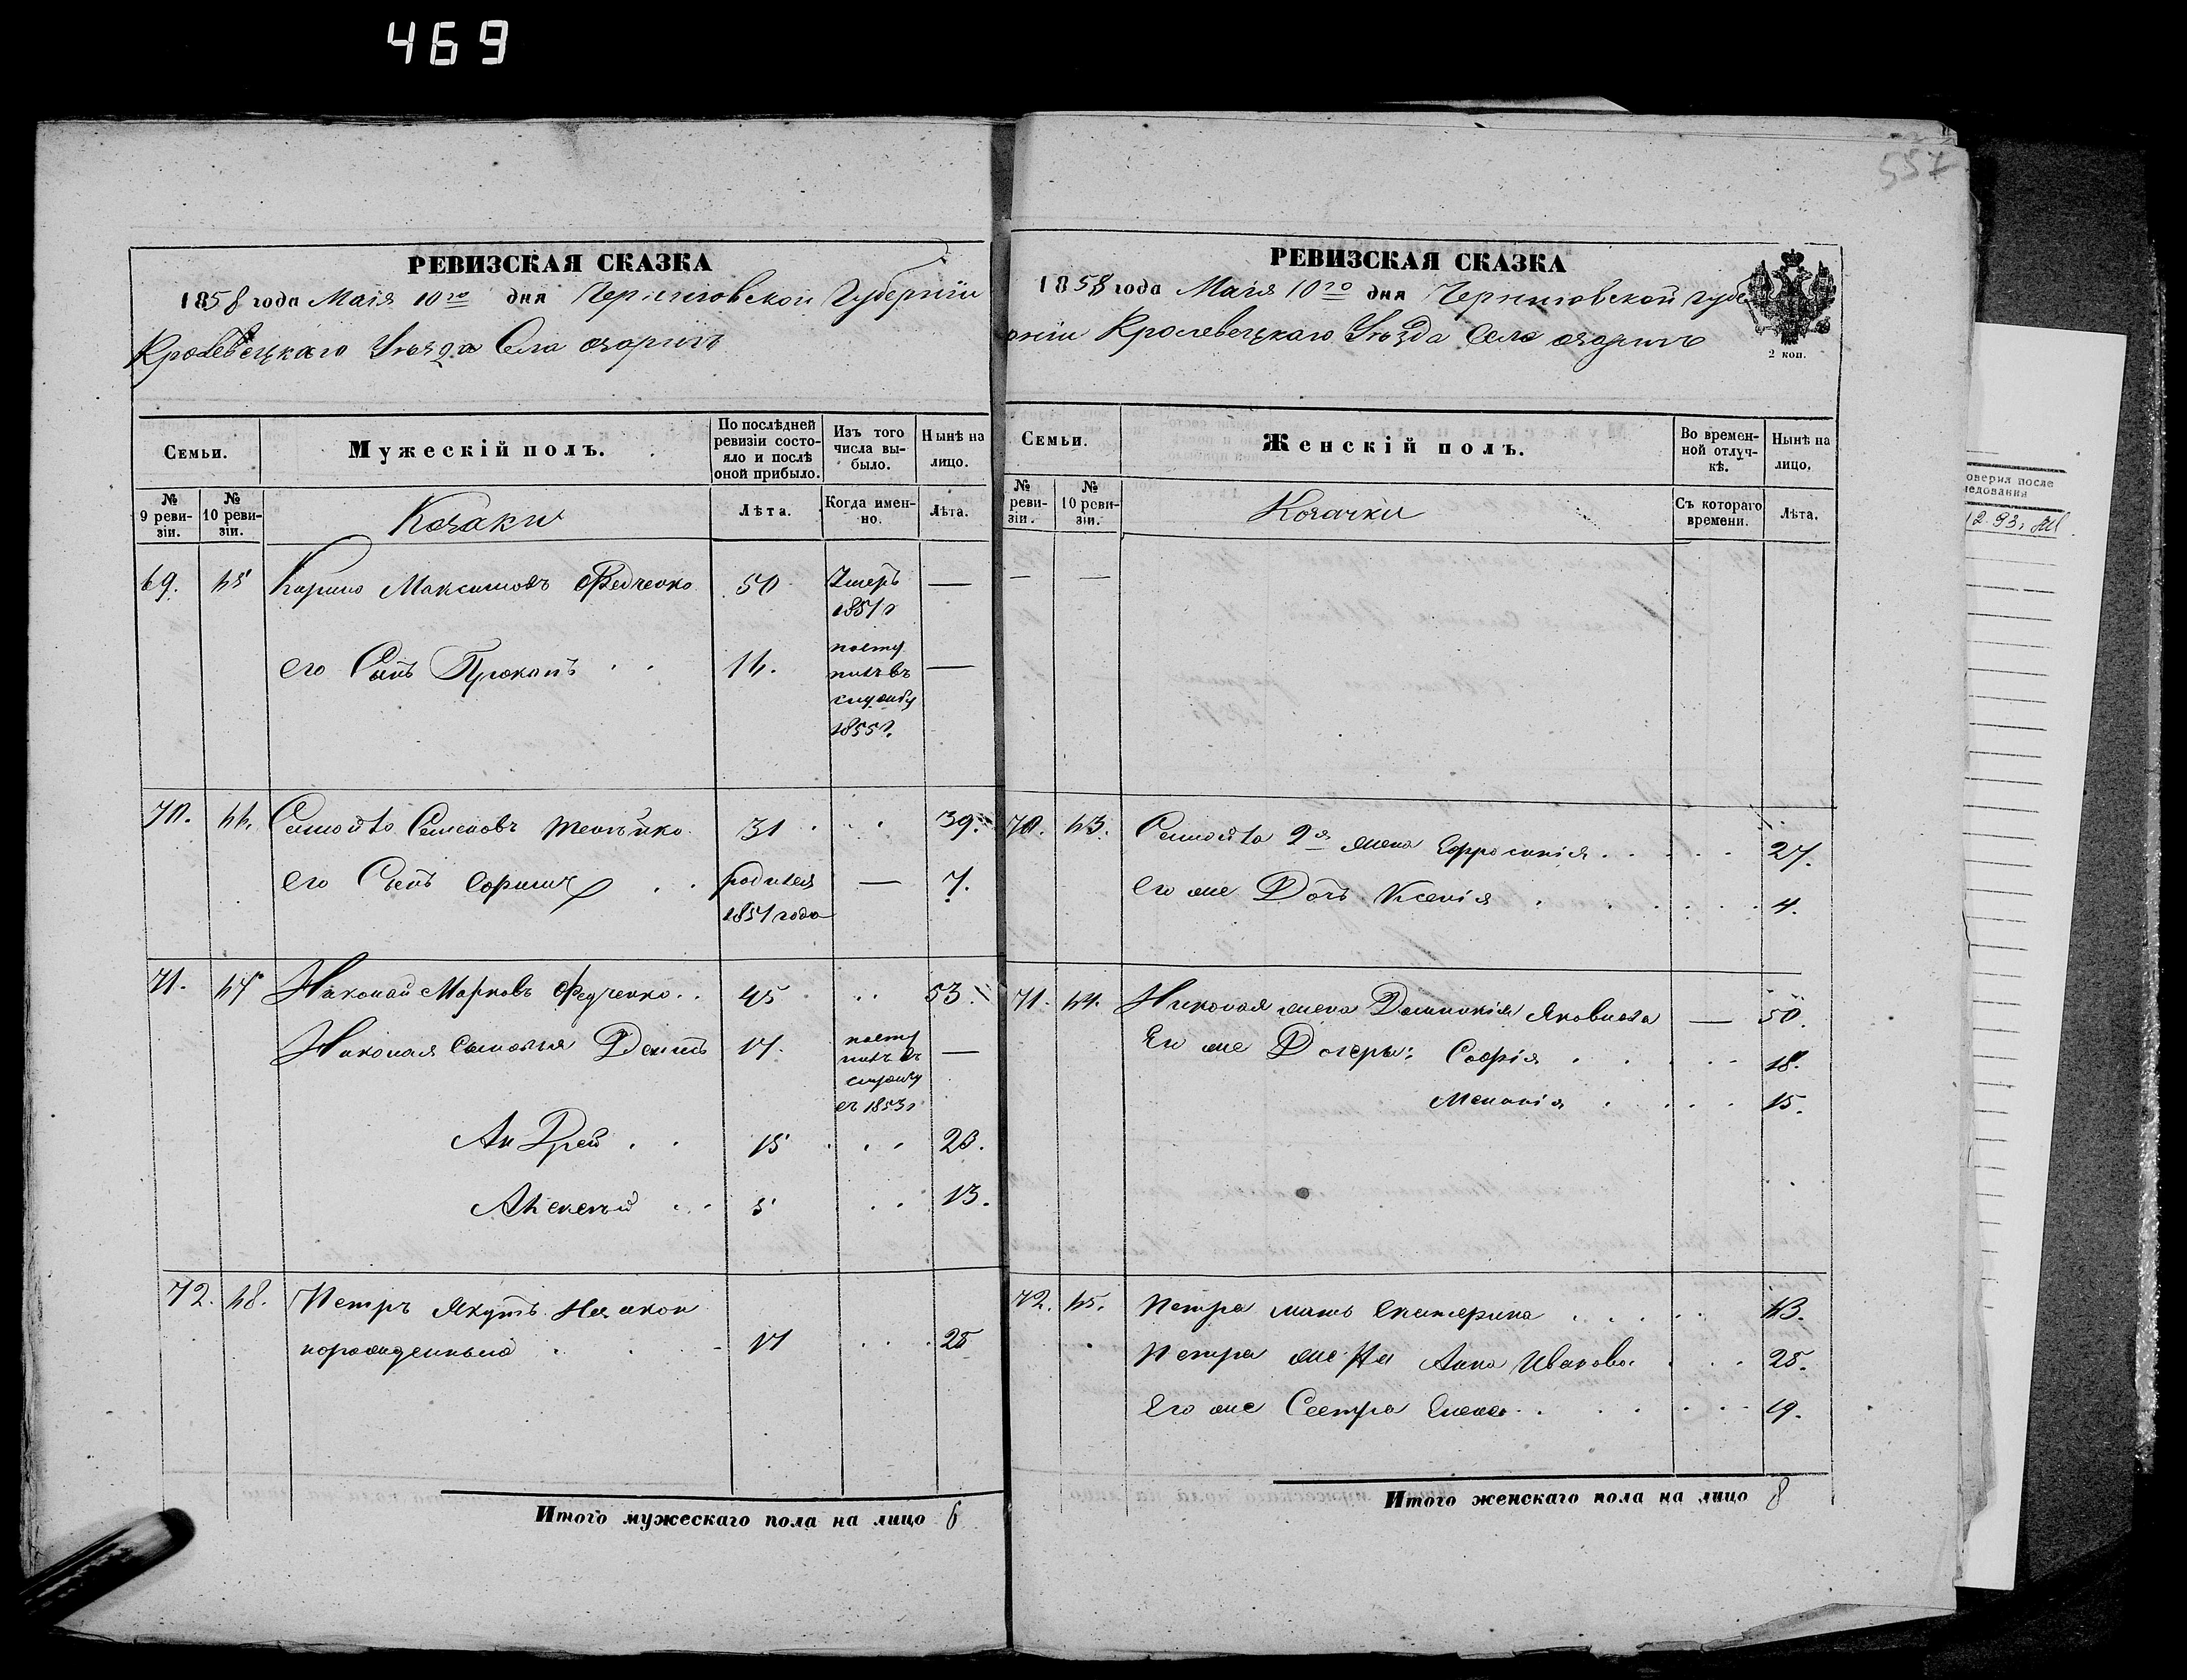 469
557
РЕВИЗСКАЯ СКАЗКА
1858 года Маія 10го дня Черниговской Губерніи
Кролевецкаго Уѣзда Села Озаричъ
Семьи.
Мужескій полъ.
По послѣдней ревизіи состояло и послѣ оной прибыло.
Изъ того числа выбыло.
Нынѣ на лицо.
№ 9 ревизіи.
№ 10 ревизіи.
Козаки
Лѣта.
Когда именно.
Лѣта.
69. Максимовъ Федченко 50 Умеръ 1851 г —
его Сынъ Прокопъ 14. поступилъ въ службу 1855 г. —
70. Семеновъ 31 39.
его Сынъ родился 1851 года — 7.
71. Николай Марковъ Федченко 45 53.
Николая сыновья 17. поступилъ въ службу въ 1853 г —
Андрей 15 23.
Алексѣй 5 13.
72. 48. Петръ Якутъ незакон
норожденный 17 25
Итого мужескаго пола на лицо 6
РЕВИЗСКАЯ СКАЗКА
1858 года Маія 10го дня Черниговской Губе
рніи Кролевецкаго Уѣзда Села Озаричъ
2 коп.
Семьи.
Женскій полъ.
Во временной отлучкѣ.
Нынѣ на лицо.
№ ревизіи.
№ 10 ревизіи.
Козачки
Съ котораго времени.
Лѣта.
— —
70. 43. 2я жена Ефросинія 27.
Его же Дочь Ксенія 4.
71. 44. Николая жена Домникія Яковлева — 50.
Его же Дочери: Софія 18.
Меланія 15.
72. 45. Петра мать Екатерина 43.
Петра же жена Анна Иванова 25.
Его же Сестра Елена 19.
Итого женскаго пола на лицо 8
оверил после
ледования
12.93.